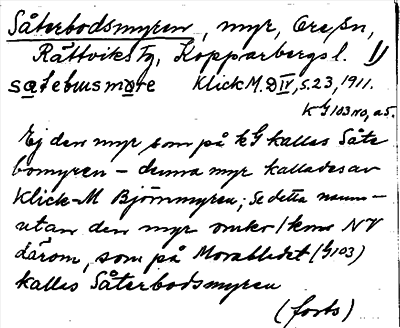 Såterbodsmyren, myr, Ore sn,
Rättviks tg, Kopparbergs l. 1)
satebusmøre Klick M. D IV, s. 23, 1911.
k G 103 no, a5.
Ej den myr som på kG kallas Såte
bomyren – denna myr kallades av
Klick-M Björnmyren; Se detta namn –
utan den myr omkr 1 km NV
därom, som på Morabladet (G103)
kallas Såterbodsmyren
(forts)